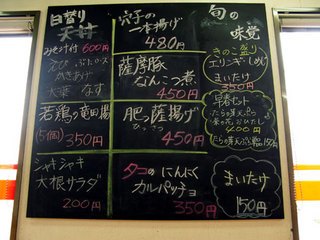 日替り
天丼
みそ汁付 600円
えび ぶたロース
かきあげ
水菜 なす
若鶏の竜田揚
(5個) 350円
シャキシャキ
大根サラダ
200円
穴子の
一本揚げ
480円
薩摩豚
なんこつ煮
450円
肥っ薩揚げ
ひっさつ
450円
タコのにんにく
カルパッチョ
350円
旬の
味覚
きのこ盛り
エリンギ・しめじ
まいたけ
350円
早春セット
400円
150円
まいたけ
150円